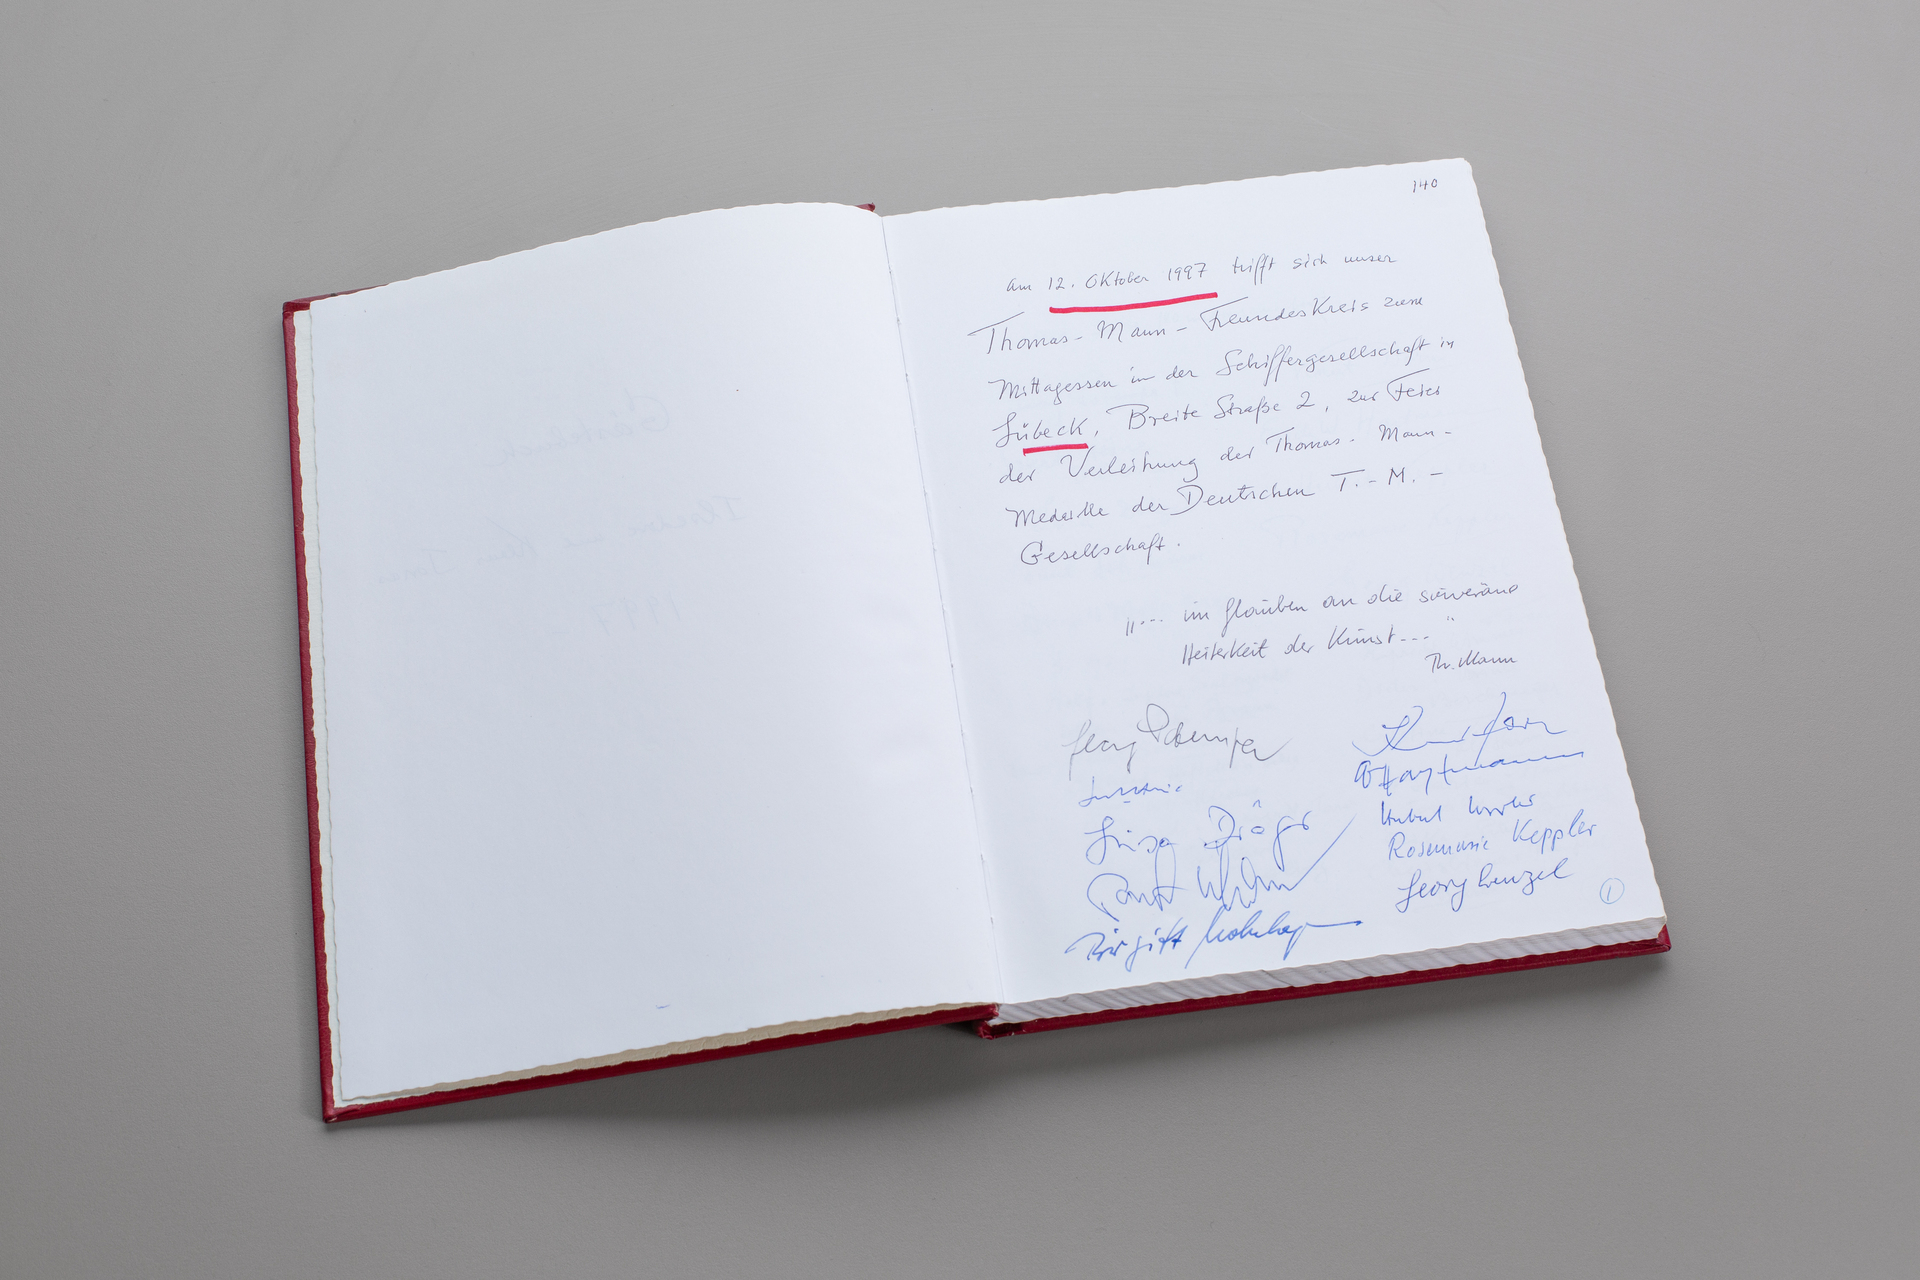 140
am 12. Oktober 1997 trifft sich unser
Thomas-Mann-Freundeskreis zum
Mittagessen in der Schiffergesellschaft in
Lübeck, Breite Straße 2, zur Feier
der Verleihung der Thomas-Mann-
Medaille der Deutschen T.-M.-
Gesellschaft.
"... im Glauben an die souveräne
Heiterkeit der Kunst..."
Th. Mann
Georg
Lisa Dräger
Birgitt
Rosemarie Keppler
Georg Wenzel
1